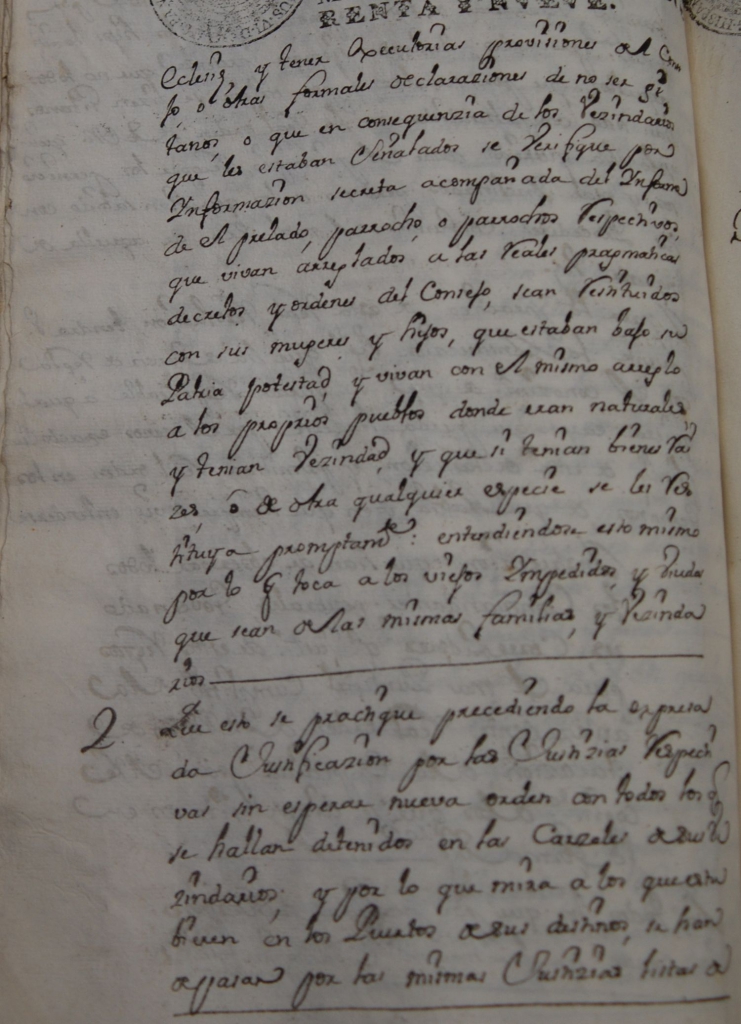 RENTA Y NUEVE.
Eclesia y tener executorias provisiones del Con
jo, o otras formales declaraziones de no ser git
tanos, o que en consequenzia de los Vezindarios
que les estaban Señalados se Verifique por
Informazion secreta acompañada del Informe
de el prelado, parrocho, o parrochos Respectivos,
que vivan arreglados, a las Reales pragmaticas
decretos y ordenes del Consejo, sean Restituidos
con sus mugeres y hijos, que estaban bajo su
Patria potestad, y vivan con el mismo arreglo
a los proprios pueblos donde eran naturales,
y tenian Vezindad, y que si tenian bienes Rai
zes ó de otra qualquier especie se les Res
tituya promptamte: entendiendose esto mismo
por lo q toca a los viejos Impedidos, y viudas
que sean de las mismas familias, y Vezinda
rios
2 Que esto se practique precediendo la expresa
da Justificazion por las Justizias Respecti
vas sin esperar nueva orden con todos los q
se hallan detenidos en las Carzeles de sus Ve
zindarios; y por lo que mira a los que estu
bieren en los Puertos de sus destinos, se han
de pasar por las mismas Justizias, listas de